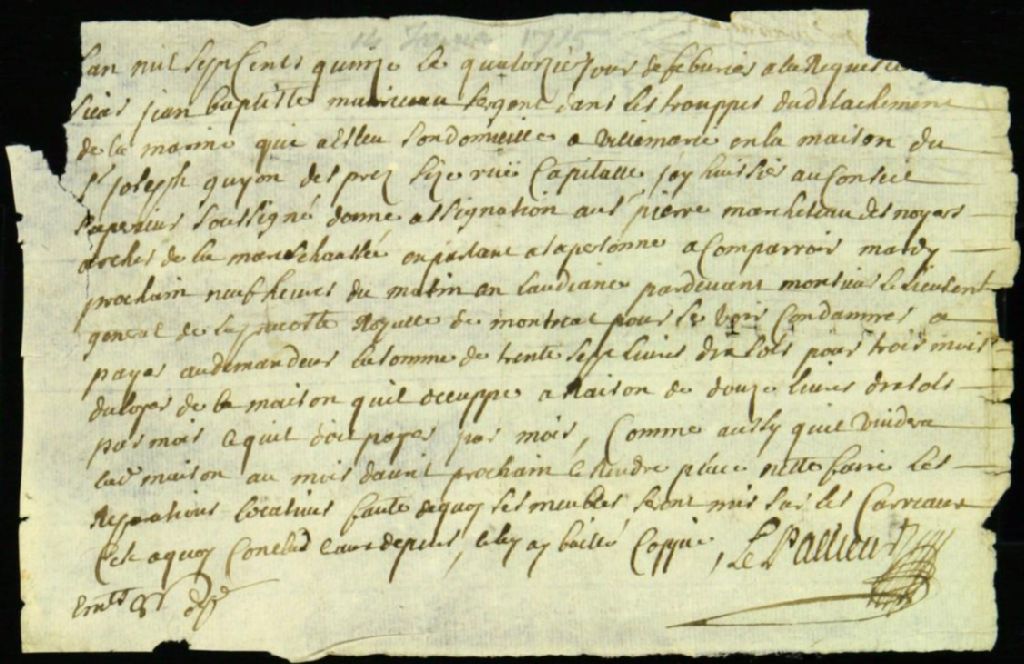 14 février 1715
Lan mil sept Cents quinze le quatorzie Jour de feburier a la Requeste
Sieur jean baptiste sergent dans les trouppes du detachement
de la marine qui a esleu son domicille a Villemarie en la maison du
Sr joseph guyon desprez size ruë Capitalle jay huissier au Conseil
superieur soussigné donné assignation au Sr pierre marcheteau desnoyers
archer de la mareschaussée en parlant a sa personne a Comparroir mardy
prochain neuf heures du matin en laudiance pardevant monsieur le lieutent
general de la Royalle de montreal pour se voir Condamner a
payer au demandeur la somme de trente sept livres dix sols pour trois mois
du loyer de la maison quil occuppe a Raison de douze livres dix sols
par mois ce quil doit payer par mois, Comme aussy quil vuidera
lad maison au mois davril prochain & Rendre place nette faire les
Reparations locatives faute dequoy ses meubles seront mis sur les Carreaux
Cest a quoy Conclud & aux depens, & luy ay baillé Coppie, Le Pallieur